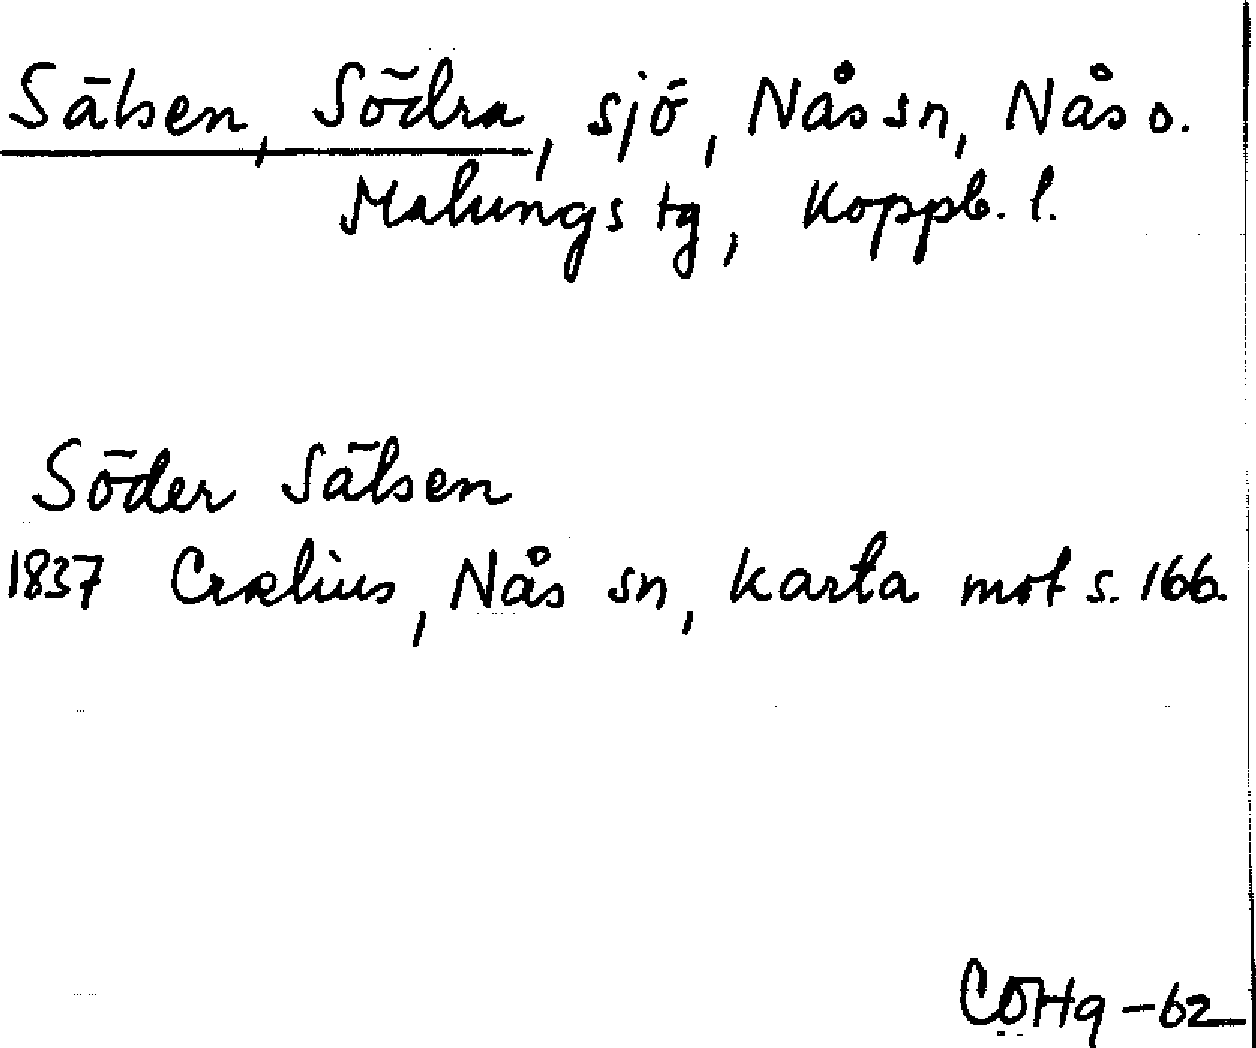 Sälsen, Södra, sjö, Nås sn, Nås o.
Malungs tg, Koppb. l.
Söder Sälsen
1837 Crælius, Nås sn, Karta mot s. 166.
COHg -62